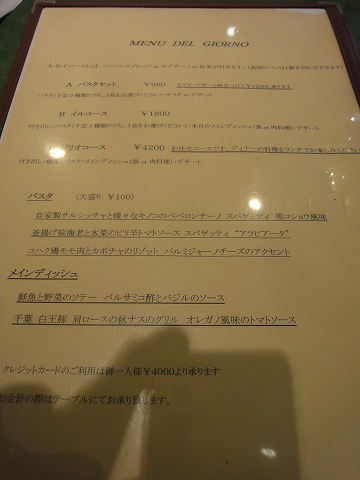 MENU DEL GIORNO
A・B・Cコースには、パン・エスプレッソ or カプチーノ or 紅茶が付きます。
A パスタセット ¥980 サラダ・デザート両方つけて¥1200も承ります
パスタ(下記3種類のうち、1品をお選びください)・サラダ or デザート
B イルコース ¥1800
付き出し・パスタ(下記3種類のうち、1品をお選びください)・本日のメインディッシュ(魚 or 肉料理)・デザート
¥4200 お任せコースです。ディナーの料理をランチでお楽しみください
パスタ・メインディッシュ(魚 or 肉料理)・デザート
パスタ (大盛り ¥100)
自家製サルシッチャと様々なキノコのペペロンチーノ スパゲッティ 黒コショウ風味
釜揚げ桜海老と水菜のピリ辛トマトソース スパゲッティ “アラビアータ”
コハク鶏モモ肉とカボチャのリゾット パルミジャーノチーズのアクセント
メインディッシュ
鮮魚と野菜のソテー バルサミコ酢とバジルのソース
千葉 白王豚 肩ロースの秋ナスのグリル オレガノ風味のトマトソース
クレジットカードのご利用は御一人様¥4000より承ります
お会計の際はテーブルにてお承り致します。